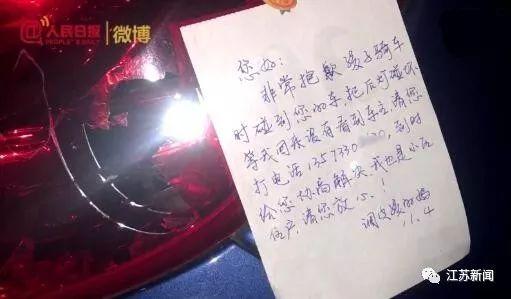 人民日报
PEOPLE'S DAILY
微博
您好：
非常抱歉孩子骑车
时碰到您的车，把后灯碰坏
等我回来没有看到车主，请您
打电话1357330 0，到时
给您协商解决，我也是小区
住户，请您放心！
调皮孩的妈
1.4
江苏新闻